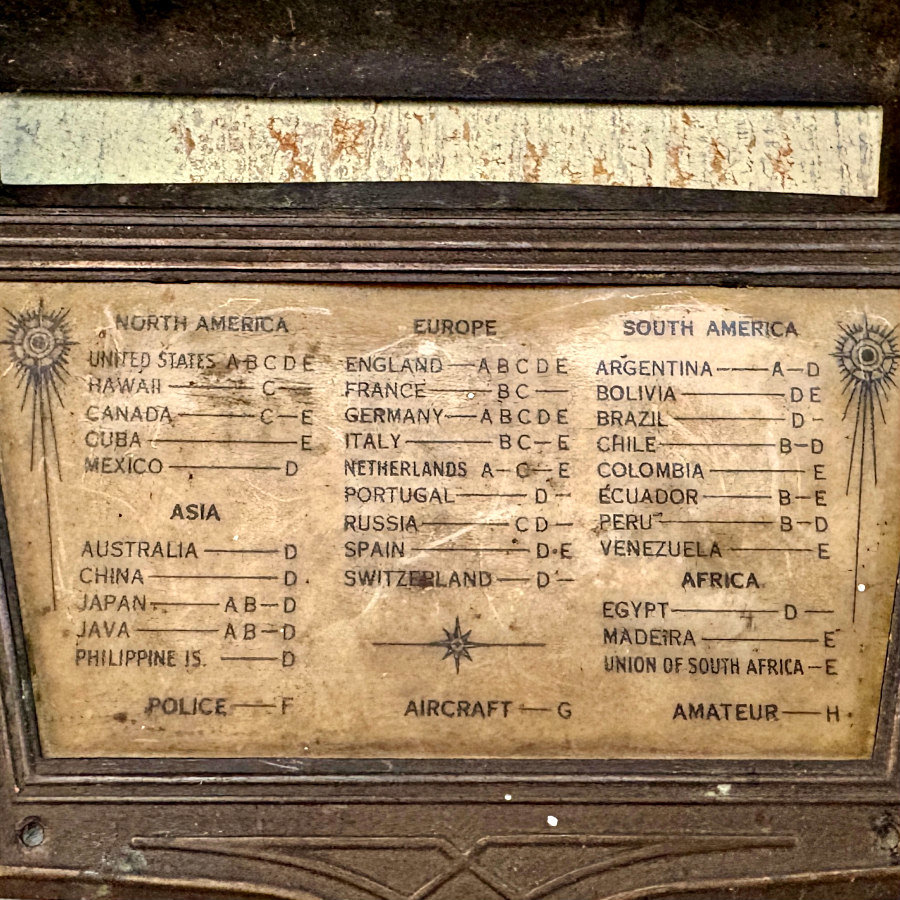 NORTH AMERICA
UNITED STATES A B C D E
HAWAII — C —
CANADA — C — E
CUBA — E
MEXICO — D
ASIA
AUSTRALIA — D
CHINA — D
JAPAN — A B — D
JAVA — A B — D
PHILIPPINE IS. — D
POLICE — F
EUROPE
ENGLAND — A B C D E
FRANCE — B C —
GERMANY — A B C D E
ITALY — B C — E
NETHERLANDS A — C — E
PORTUGAL — D —
RUSSIA — C D —
SPAIN — D E
SWITZERLAND — D —
AIRCRAFT — G
SOUTH AMERICA
ARGENTINA — A — D
BOLIVIA — D E
BRAZIL — D -
CHILE — B — D
COLOMBIA — E
ECUADOR — B — E
PERU — B — D
VENEZUELA — E
AFRICA
EGYPT — D —
MADEIRA — E
UNION OF SOUTH AFRICA — E
AMATEUR — H